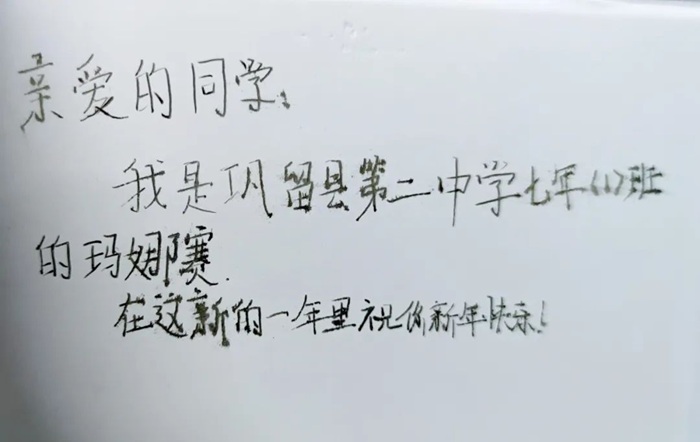 亲爱的同学:
我是巩留县第二中学七年(1)班
的玛娜赛.
在这新的一年里祝你新年快乐!